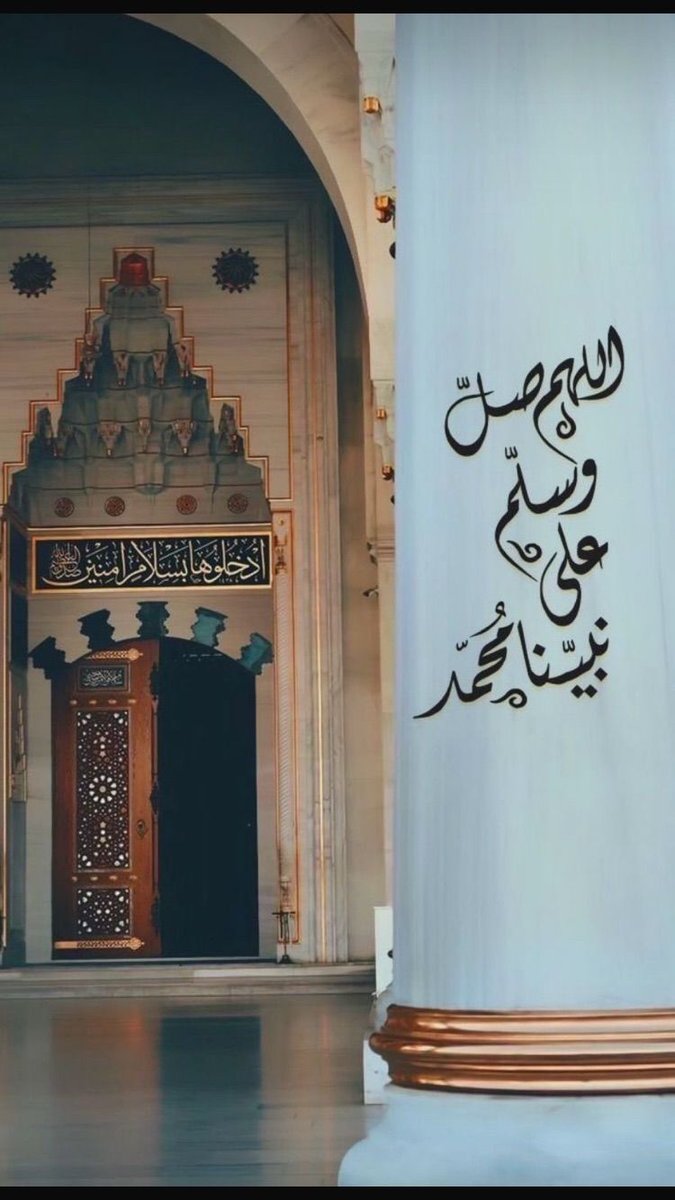 اللهم صلّ
وسلّم
على
نبيّنا مُحمّد
ادْخُلُوهَا بِسَلَامٍ اٰمِنٖينَ